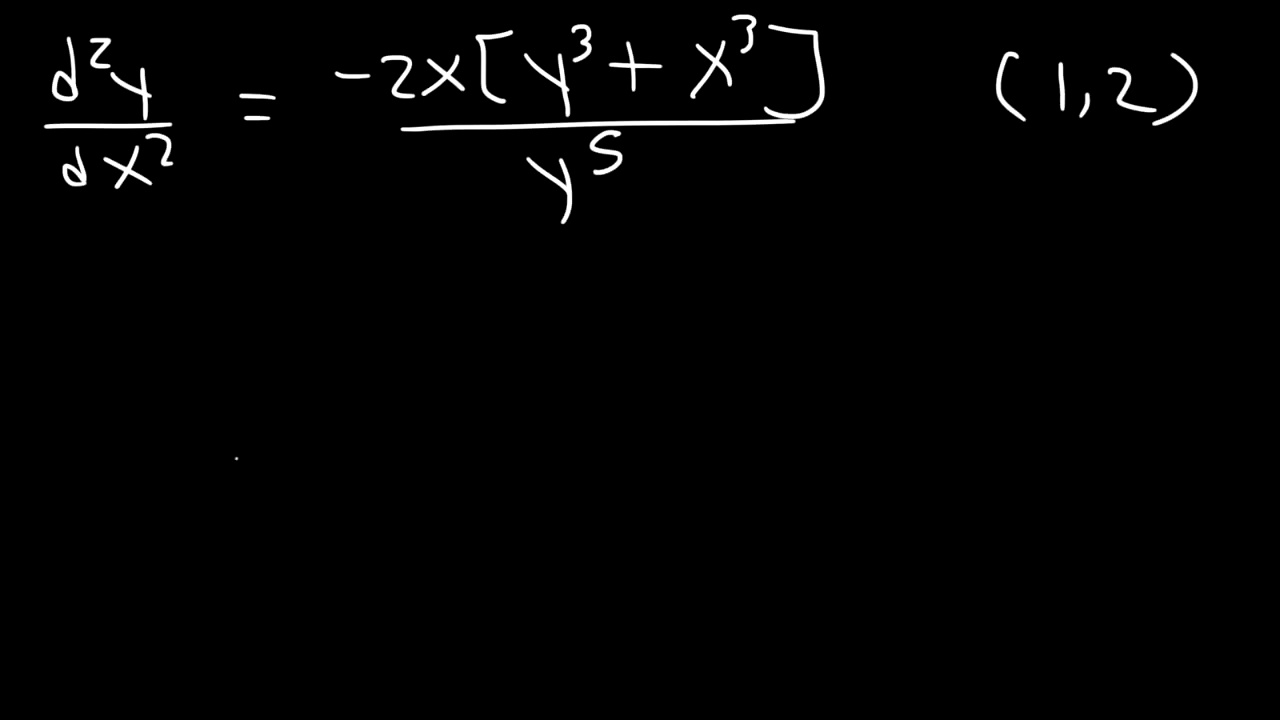 d²y/dx² = -2x[y³ + x³]/y⁵ (1,2)